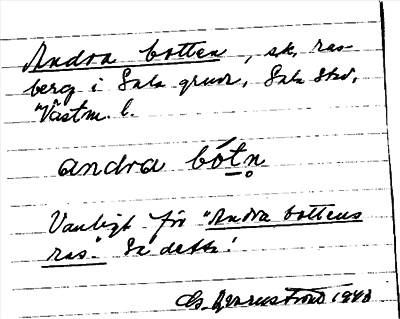 Andra botten, sk. ras-
berg i Sala gruva, Sala stad,
Västm. l.
andra bótn̥
Vanligt för "Andra bottens
ras". Se detta!
1940